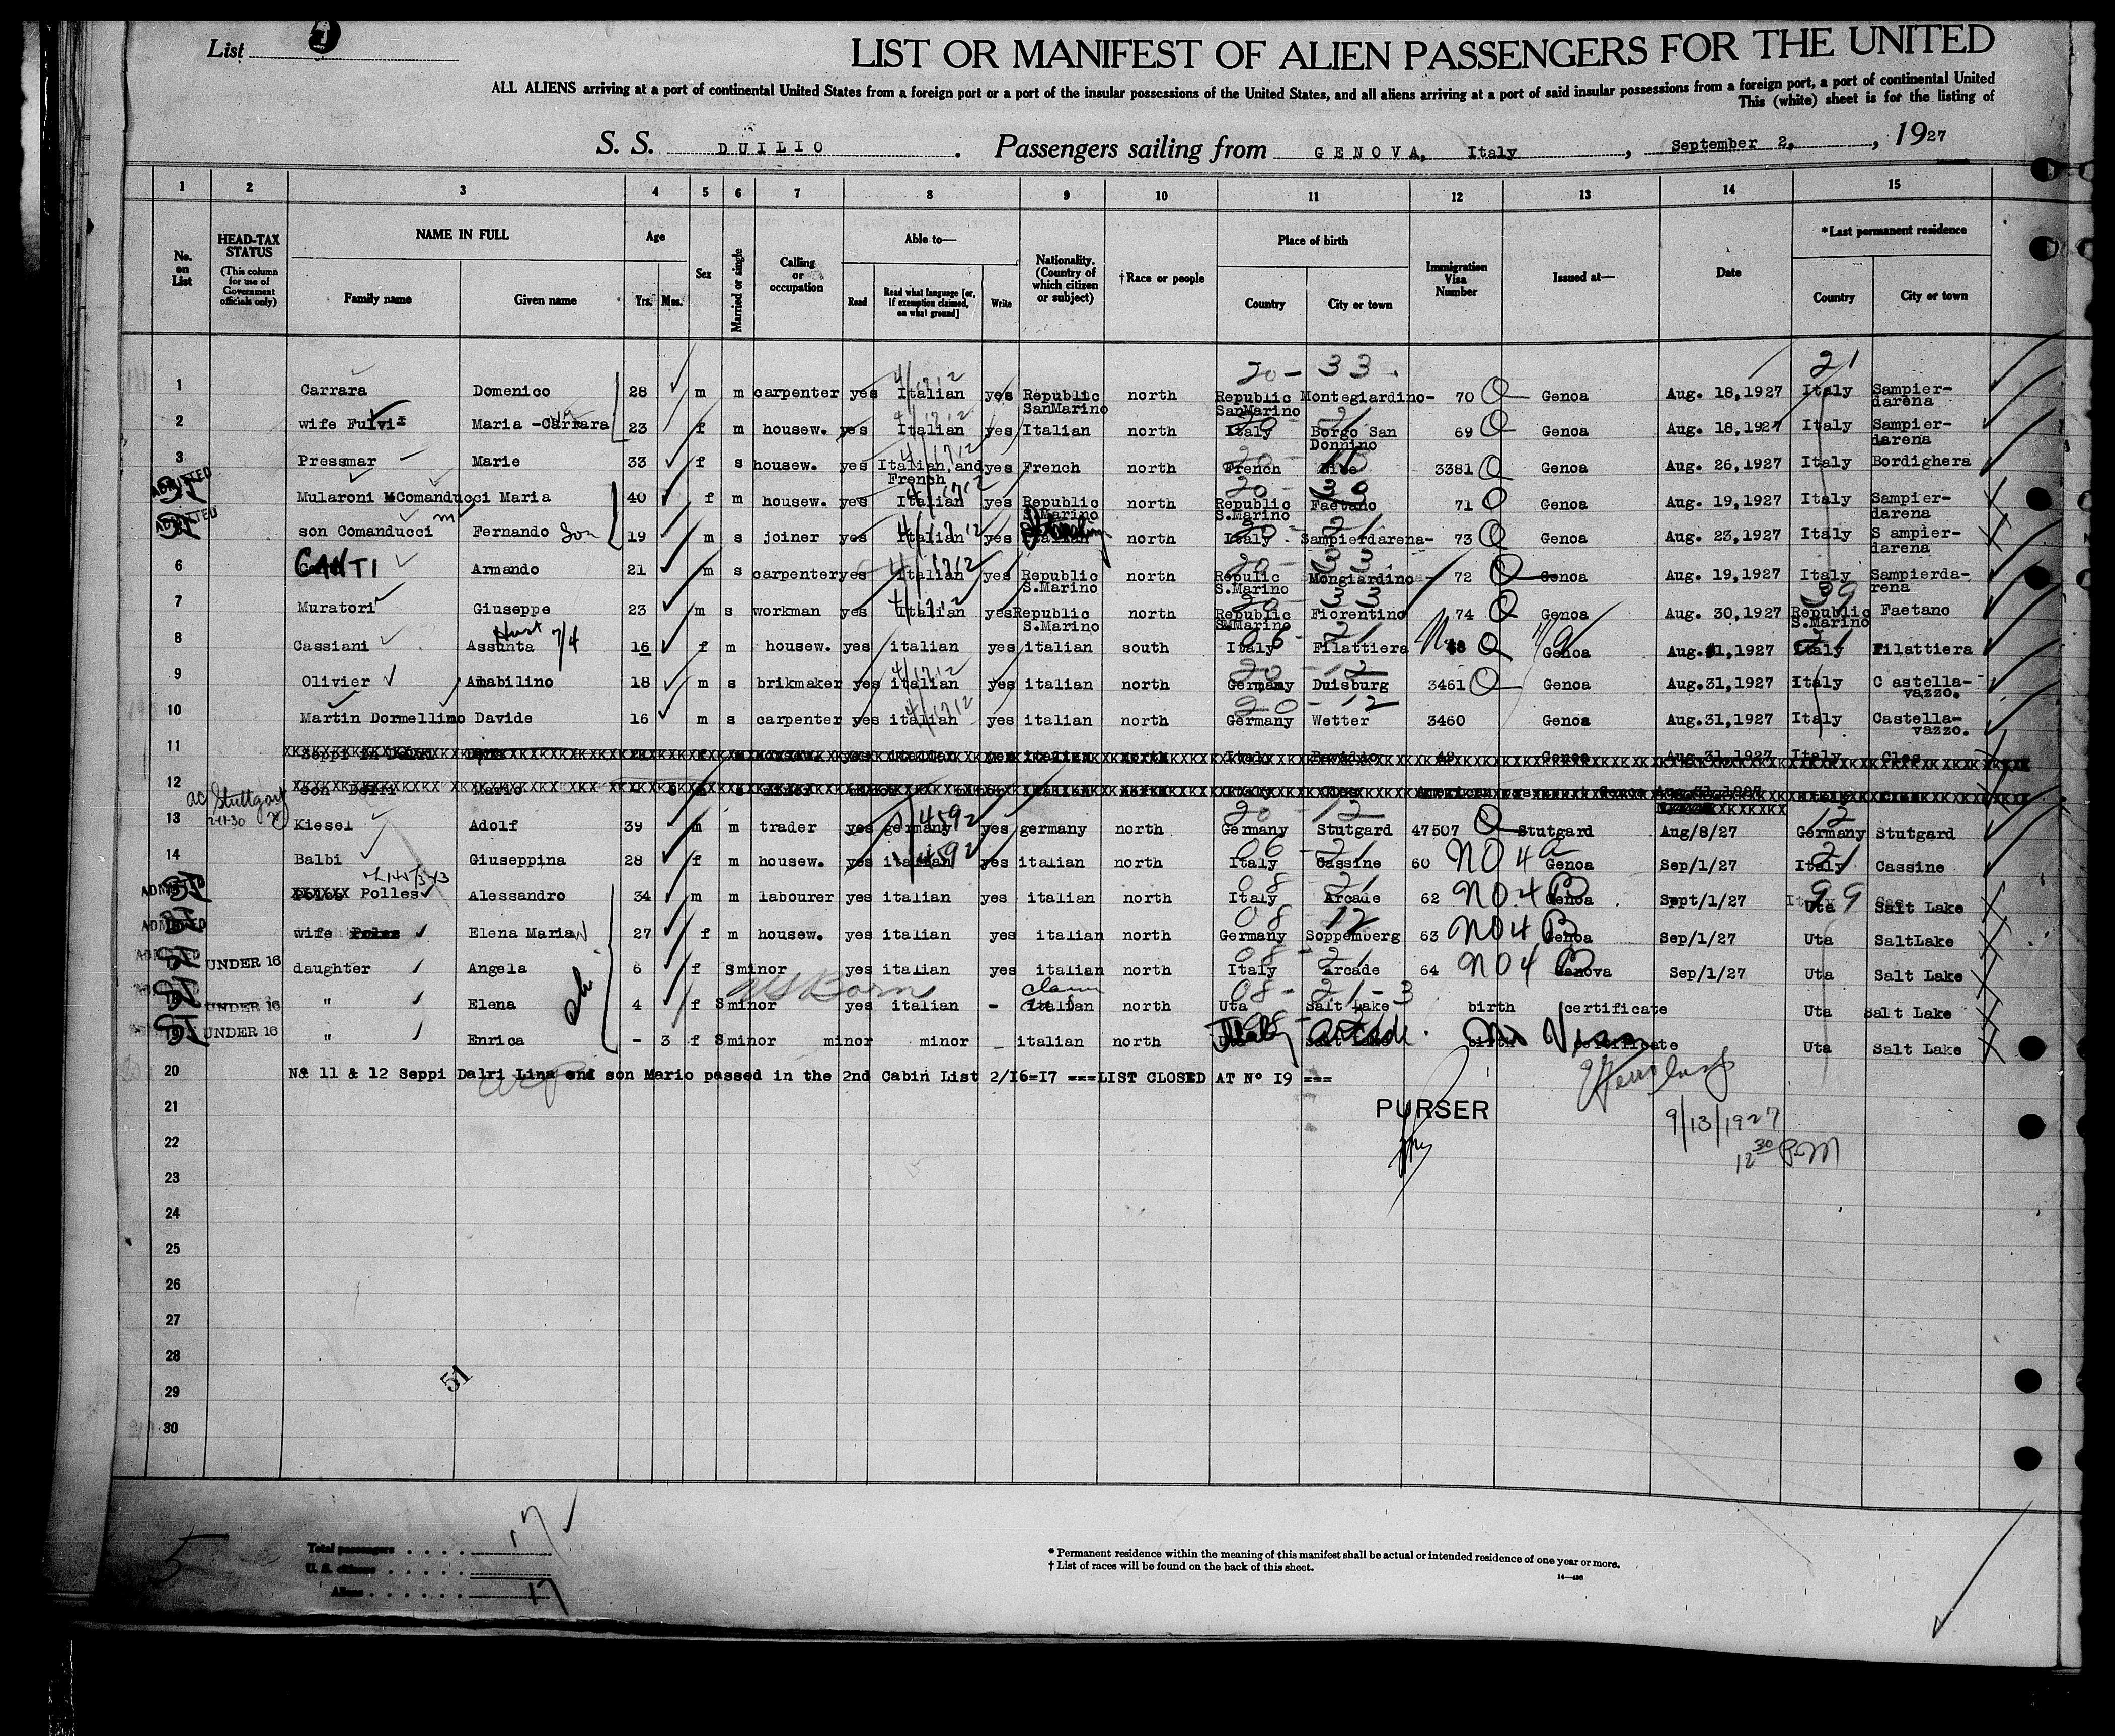 List 5
LIST OR MANIFEST OF ALIEN PASSENGERS FOR THE UNITED
ALL ALIENS arriving at a port of continental United States from a foreign port or a port of the insular possessions of the United States, and all aliens arriving at a port of said insular possessions from a foreign port, a port of continental United
This (white) sheet is for the listing of
S. S. DUILIO . Passengers sailing from GENOVA, Italy , September 2, , 1927
1 2 3 4 5 6 7 8 9 10 11 12 13 14 15
No. on List HEAD-TAX STATUS (This column for use of Government officials only) NAME IN FULL Family name Given name Age Yrs. Mos. Sex Married or single Calling or occupation Able to— Read Read what language [or, if exemption claimed, on what ground] Write Nationality. (Country of which citizen or subject) †Race or people Place of birth Country City or town Immigration Visa Number Issued at— Date *Last permanent residence Country City or town
20 - 33 21
1 Carrara Domenico 28 m m carpenter yes Italian yes Republic SanMarino north Republic SanMarino Montegiardino- 70 Q Genoa Aug. 18,1927 Italy Sampier-darena
2 wife Fulvi Maria -Carrara 23 f m housew. yes Italian yes Italian north Italy Borgo San Donnino 69 Q Genoa Aug. 18,1927 Italy Sampier-darena
3 Pressmar Marie 33 f s housew. yes Italian,and French yes French north French 3381 Q Genoa Aug. 26,1927 Italy Bordighera
ADMITTED SI Mularoni Comanducci Maria 40 f m housew. yes Italian yes Republic S.Marino north Republic S.Marino Faetano 71 Q Genoa Aug. 19,1927 Italy Sampier-darena
ADMITTED SI son Comanducci Fernando Son 19 m s joiner yes Italian yes north Italy Sampierdarena- 73 Q Genoa Aug. 23,1927 Italy S ampier-darena
6 CANTI Armando 21 m s carpenter yes Italian yes Republic S.Marino north Repulic S.Marino Mongiardino- 72 Q Genoa Aug. 19,1927 Italy Sampierda-rena
7 Muratori Giuseppe 23 m s workman yes Italian yes Republic S.Marino north Republic S.Marino Fiorentino 74 Q Genoa Aug. 30,1927 Republic S.Marino Faetano
8 Cassiani Assunta 16 f m housew. yes italian yes italian south Italy Filattiera Q Genoa Aug.31,1927 Italy Filattiera
9 Olivier Amabilino 18 m s brikmaker yes italian yes italian north Germany Duisburg 3461 Q Genoa Aug.31,1927 Italy C astella-vazzo.
10 Martin Dormellino Davide 16 m s carpenter yes italian yes italian north Germany Wetter 3460 Genoa Aug.31,1927 Italy Castella-vazzo.
11 Seppi in italian yes italian north Italy Genoa Aug.31,1927 Italy Cles
12 son Mario
Stuttgart
2-11-30
13 Kiesel Adolf 39 m m trader yes germany yes germany north Germany Stutgard 47507 Q Stutgard Aug/8/27 Germany Stutgard
14 Balbi Giuseppina 28 f m housew. yes italian yes italian north Italy Cassine 60 NO 4 a Genoa Sep/1/27 Italy Cassine
ADMITTED SI Polles Alessandro 34 m m labourer yes italian yes italian north Italy Arcade 62 NO 4 B Genoa Sept/1/27 Uta Salt Lake
ADMITTED SI wife Elena Maria 27 f m housew. yes italian yes italian north Germany Soppemberg 63 NO 4 B Genoa Sep/1/27 Uta SaltLake
SI UNDER 16 daughter Angela 6 f S minor yes italian yes italian north Italy Arcade 64 NO 4 B Genova Sep/1/27 Uta Salt Lake
US Born claim
SI UNDER 16 " Elena 4 f S minor yes italian - italian north Uta Salt Lake birth certificate Uta Salt Lake
SI 19 UNDER 16 " Enrica - 3 f S minor minor minor - italian north Italy Arcade. No Visa Uta Salt Lake
20 Nº 11 & 12 Seppi Dalri Lina and son Mario passed in the 2nd Cabin List 2/16=17 ===LIST CLOSED AT Nº 19 ===
21 PURSER 9/13/1927
22 12 30 P.M
23
24
25
26
27
28
51
29
30
5
Total passengers . . . . 17
U. S. citizens . . . . .
Aliens . . . . . . 17
* Permanent residence within the meaning of this manifest shall be actual or intended residence of one year or more.
† List of races will be found on the back of this sheet.
14—430